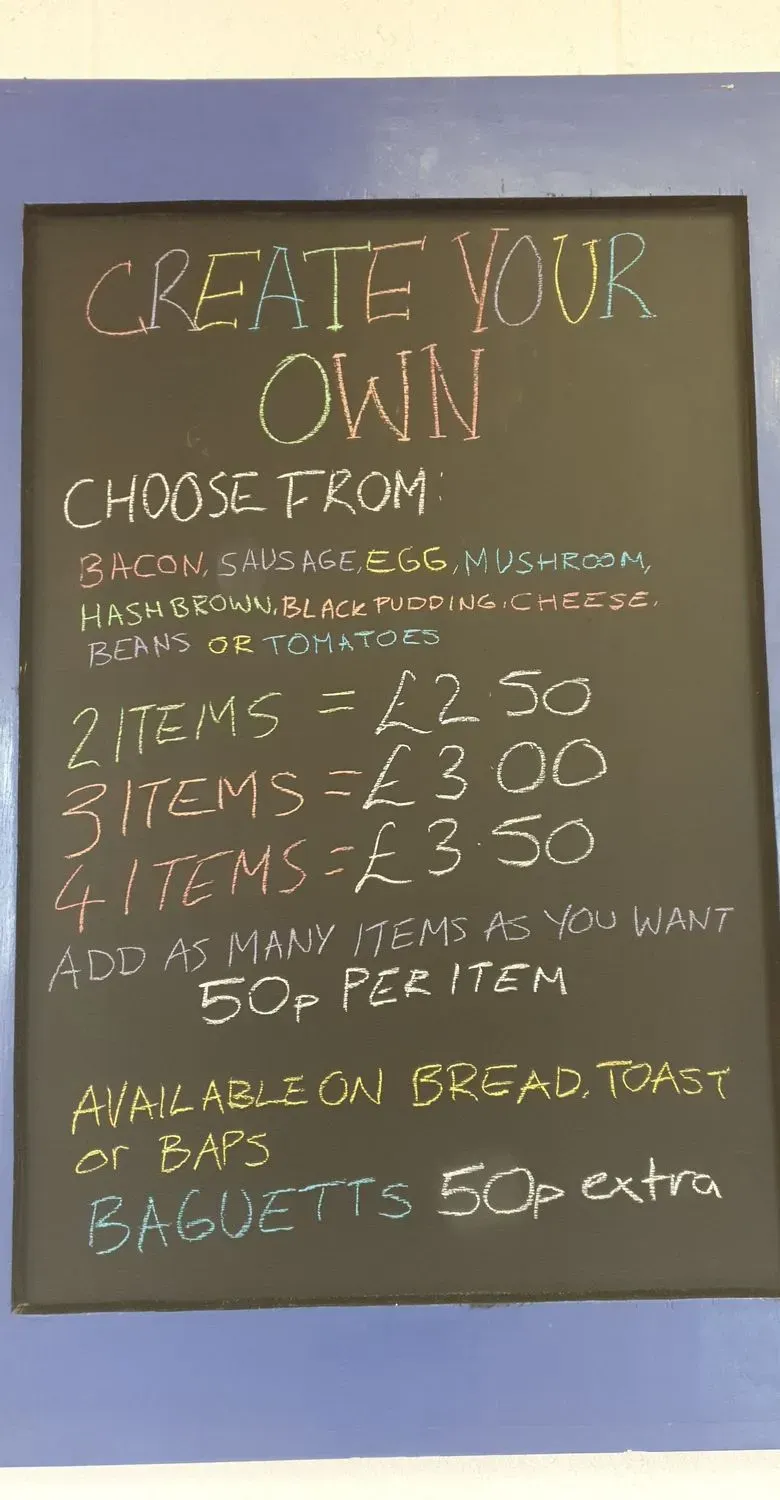 CREATE YOUR
OWN
CHOOSE FROM:
BACON, SAUSAGE, EGG, MUSHROOM,
HASH BROWN, BLACK PUDDING, CHEESE,
BEANS OR TOMATOES
2 ITEMS = £2.50
3 ITEMS = £3 00
4 ITEMS = £3.50
ADD AS MANY ITEMS AS YOU WANT
50p PER ITEM
AVAILABLE ON BREAD, TOAST
or BAPS
BAGUETTS 50p extra